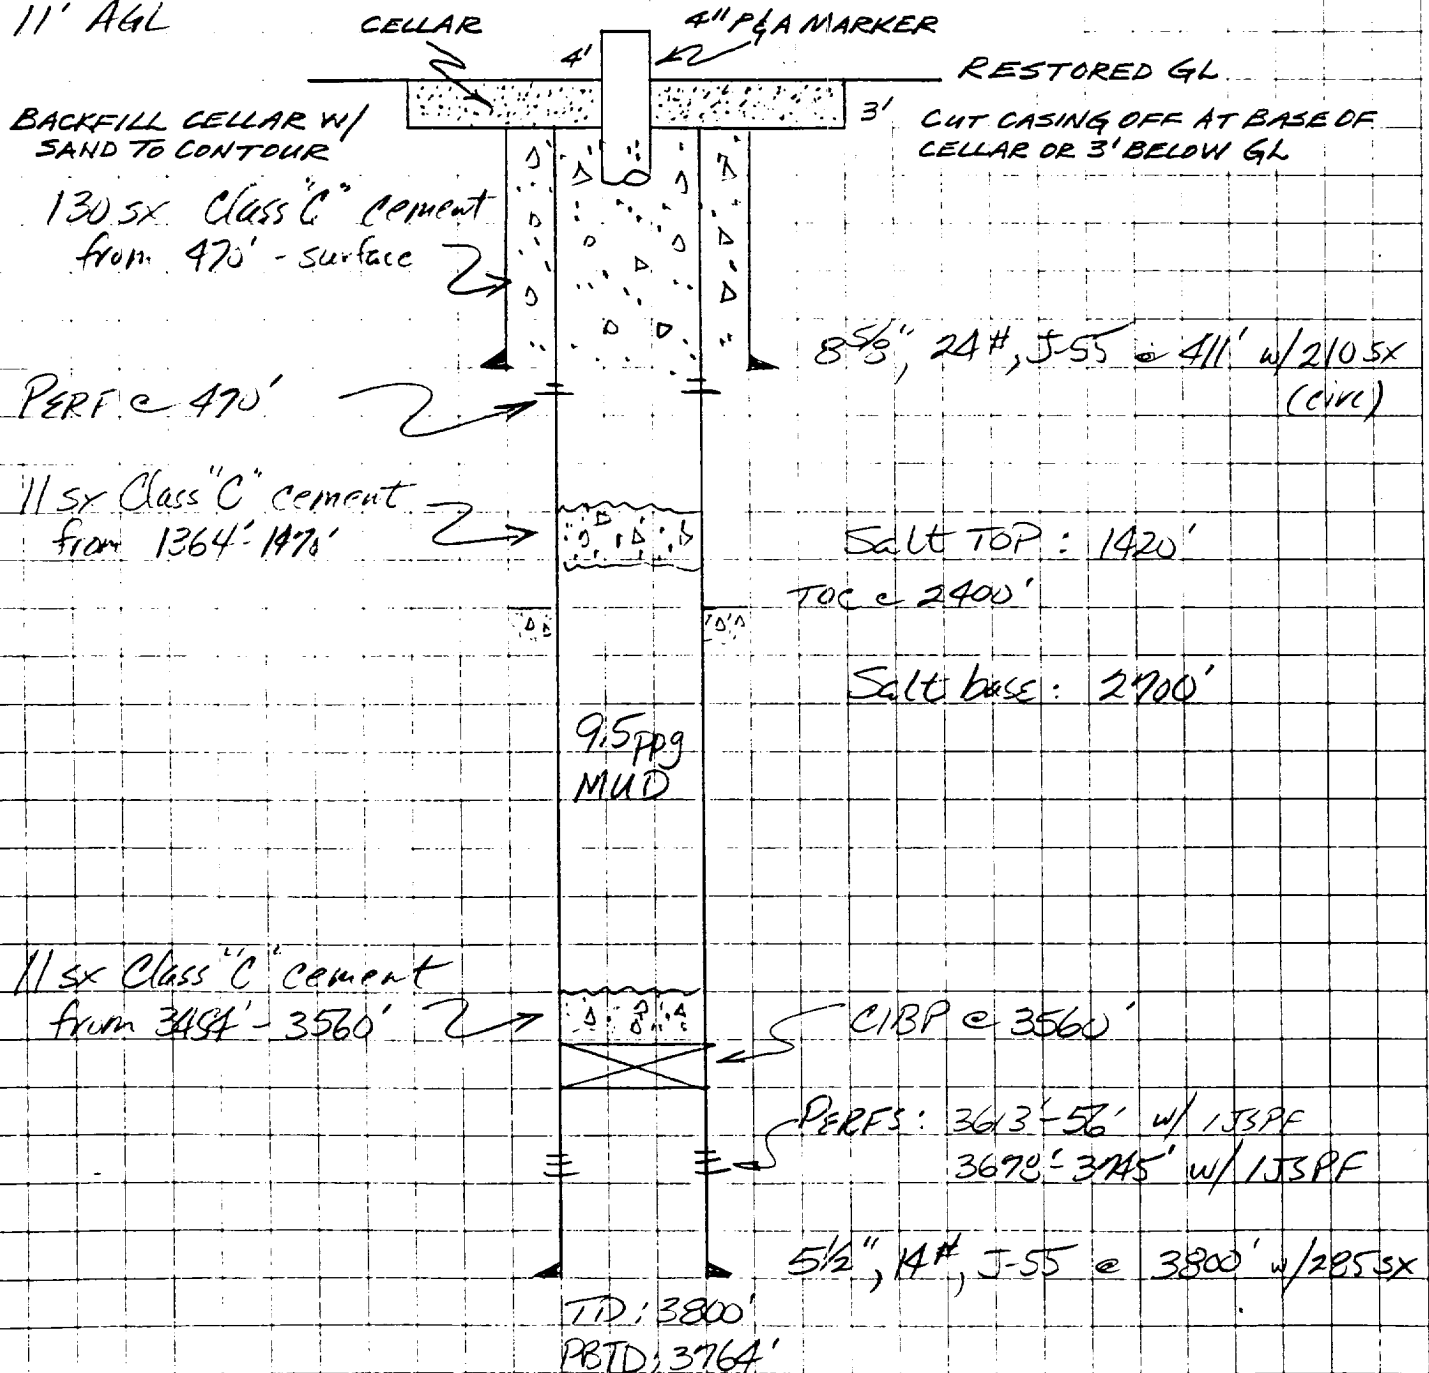 11' AGL
CELLAR
4" P&A MARKER
4'
RESTORED GL
BACKFILL CELLAR W/
SAND TO CONTOUR
3'
CUT CASING OFF AT BASE OF
CELLAR OR 3' BELOW GL
130 sx Class "C" cement
from 470' - surface
8 5/8", 24#, J-55 @ 411' w/210 sx
(circ)
PERF @ 470'
11 sx Class "C" cement
from 1364'-1470'
Salt TOP: 1420'
TOC @ 2400'
Salt base: 2700'
9.5 ppg
MUD
11 sx Class "C" cement
from 3454' - 3560'
CIBP @ 3560'
PERFS: 3613'-56' w/ 1JSPF
3678'-3745' w/ 1JSPF
5 1/2", 14#, J-55 @ 3800' w/285 sx
TD: 3800'
PBTD: 3764'